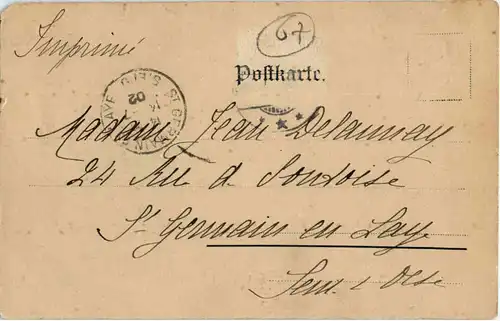 Imprimé
67
Postkarte.
ST GERMAIN
02
Madame Jean Delaunay
24 Rue d. Pontoise
St Germain en Laye
Seine & Oise